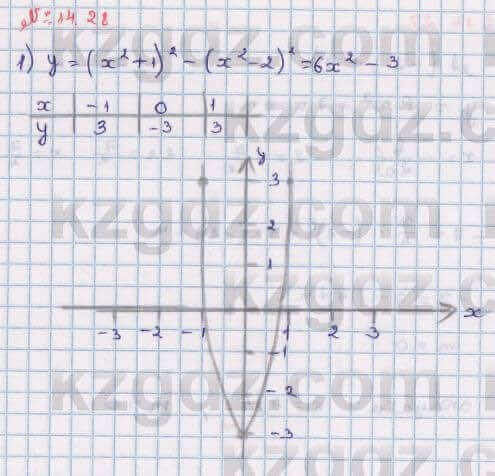 № 14.28
1) y = (x² + 1)² - (x² - 2)² = 6x² - 3
x -1 0 1
y 3 -3 3
y
3
2
1
-3 -2 -1 1 2 3 x
-1
-2
-3
kzgaz.com
kzgaz.com
kzgaz.com
kzgaz.com
kzgaz.com